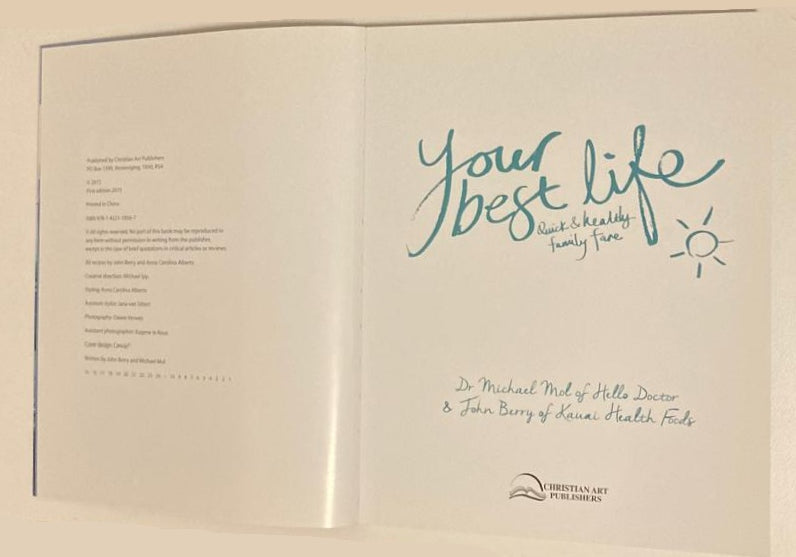 Published by Christian Art Publishers
PO Box 1599, Vereeniging, 1930, RSA
© 2015
First edition 2015
Printed in China
ISBN 978-1-4321-
© All rights reserved. No part of this book may be reproduced in
any form without permission in writing from the publisher,
except in the case of brief quotations in critical articles or reviews.
All recipes by John Berry and Anna Carolina Alberts
Creative direction: Michael
Styling: Anna Carolina Alberts
Assistant stylist: Jana van
Photography:
Assistant photographer: Eugene le Roux
Cover design:
Written by John Berry and Michael Mol
your
best life
Quick & healthy
family fare
Dr Michael Mol of Hello Doctor
& John Berry of Kauai Health Foods
CHRISTIAN ART
PUBLISHERS